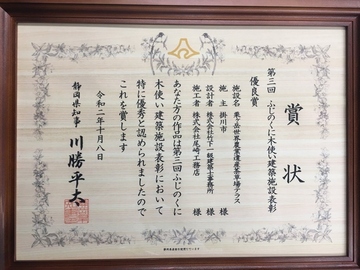 賞状
第三回 ふじのくに木使い建築施設表彰
優良賞
施設名 粟ヶ岳世界農業遺産茶草場テラス
施主 掛川市 様
設計者 株式会社竹下一級建築士事務所 様
施工者 株式会社尾崎工務店 様
あなた方の作品は第三回ふじのくに
木使い建築施設表彰において
特に優秀と認められましたので
これを賞します
令和二年十月八日
静岡県知事 川勝平太